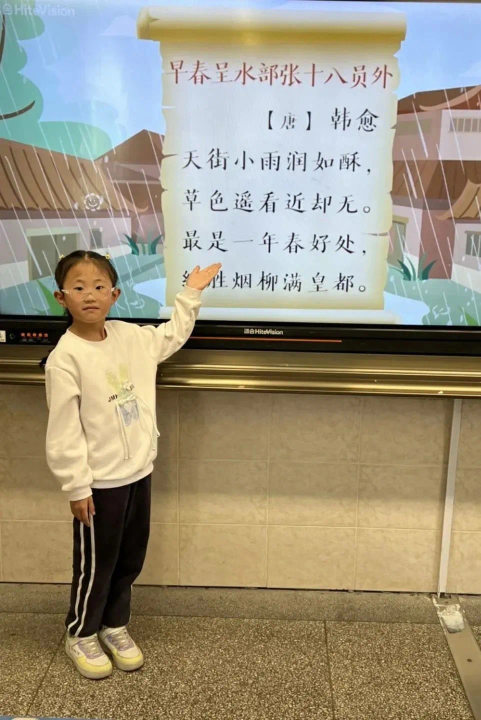 HiteVision
早春呈水部张十八员外
【唐】 韩愈
天街小雨润如酥，
草色遥看近却无。
最是一年春好处，
胜烟柳满皇都。
鸿合HiteVision